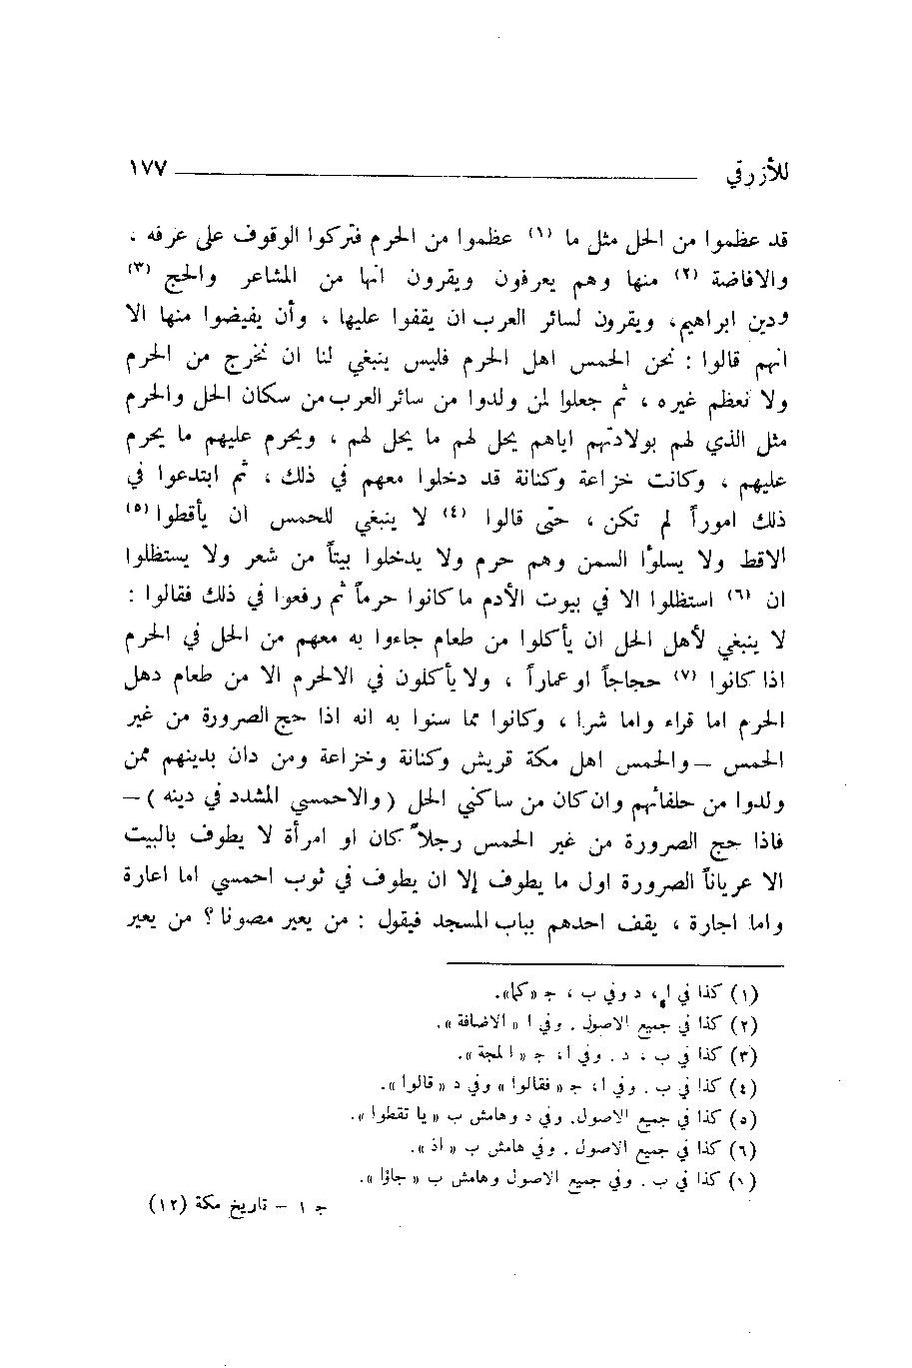 للأزرقي ١٧٧
قد عظموا من الحل مثل ما (١) عظموا من الحرم فتركوا الوقوف على عرفه .
والافاضة (٢) منها وهم يعرفون ويقرون انها من المشاعر والحج (٣)
ودين ابراهيم، ويقرون لسائر العرب ان يقفوا عليها ، وأن يفيضوا منها الا
انهم قالوا : نحن الحمس اهل الحرم فليس ينبغي لنا ان نخرج من الحرم
ولا نعظم غيره ، ثم جعلوا لمن ولدوا من سائر العرب من سكان الحل والحرم
مثل الذي لهم بولادتهم اياهم يحل لهم ما يحل لهم ، ويحرم عليهم ما يحرم
عليهم ، وكانت خزاعة وكنانة قد دخلوا معهم في ذلك ، ثم ابتدعوا في
ذلك اموراً لم تكن ، حتى قالوا (٤) لا ينبغي للحمس ان يأقطوا (٥)
الاقط ولا يسلؤا السمن وهم حرم ولا يدخلوا بيتاً من شعر ولا يستظلوا
ان (٦) استظلوا الا في بيوت الأدم ما كانوا حرماً ثم رفعوا في ذلك فقالوا :
لا ينبغي لأهل الحل ان يأكلوا من طعام جاءوا به معهم من الحل في الحرم
اذا كانوا (٧) حجاجاً او عماراً ، ولا يأكلون في الالحرم الا من طعام دهل
الحرم اما قراء واما شرا ، وكانوا مما سنوا به انه اذا حج الصرورة من غير
الحمس – والحمس اهل مكة قريش وكنانة وخزاعة ومن دان بدينهم ممن
ولدوا من حلفائهم وان كان من ساكني الحل ( والاحمسي المشدد في دينه ) –
فاذا حج الصرورة من غير الحمس رجلاً كان او امرأة لا يطوف بالبيت
الا عرياناً الصرورة اول ما يطوف إلا ان يطوف في ثوب احمسي اما اعارة
واما اجارة ، يقف احدهم بباب المسجد فيقول : من يعير مصونا ؟ من يعير
(١) كذا في ا، د وفي ب ، ج «كما».
(٢) كذا في جميع الاصول . وفي ا « الاضافة ».
(٣) كذا في ب ، د . وفي ا، ج « المجة ».
(٤) كذا في ب . وفي ا، ج « فقالوا » وفي د « قالوا ».
(٥) كذا في جميع الاصول. وفي د وهامش ب « يا تقطوا ».
(٦) كذا في جميع الاصول . وفي هامش ب « اذ ».
(٧) كذا في ب . وفي جميع الاصول وهامش ب « جاؤا ».
ج ١ – تاريخ مكة (١٢)